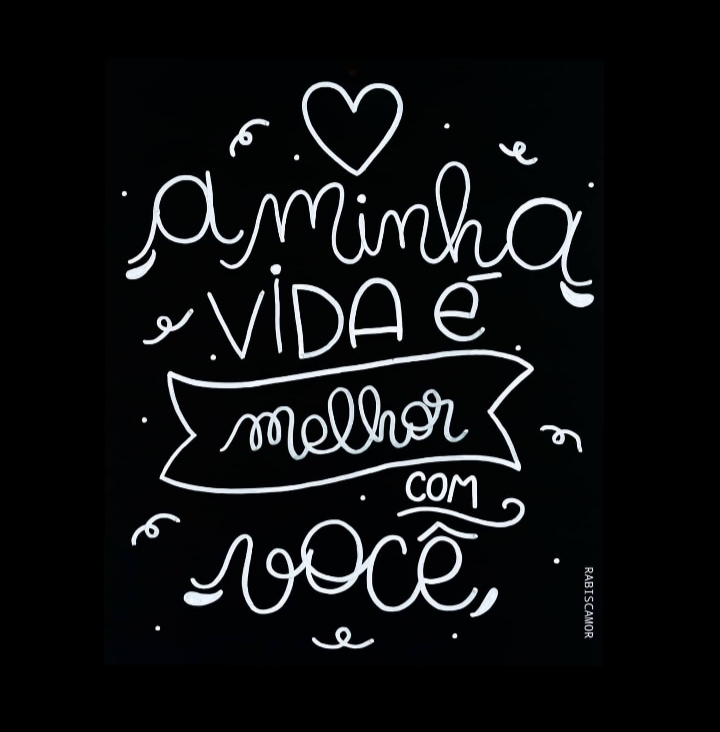 a minha
VIDA É
melhor
COM
você
RABISCAMOR